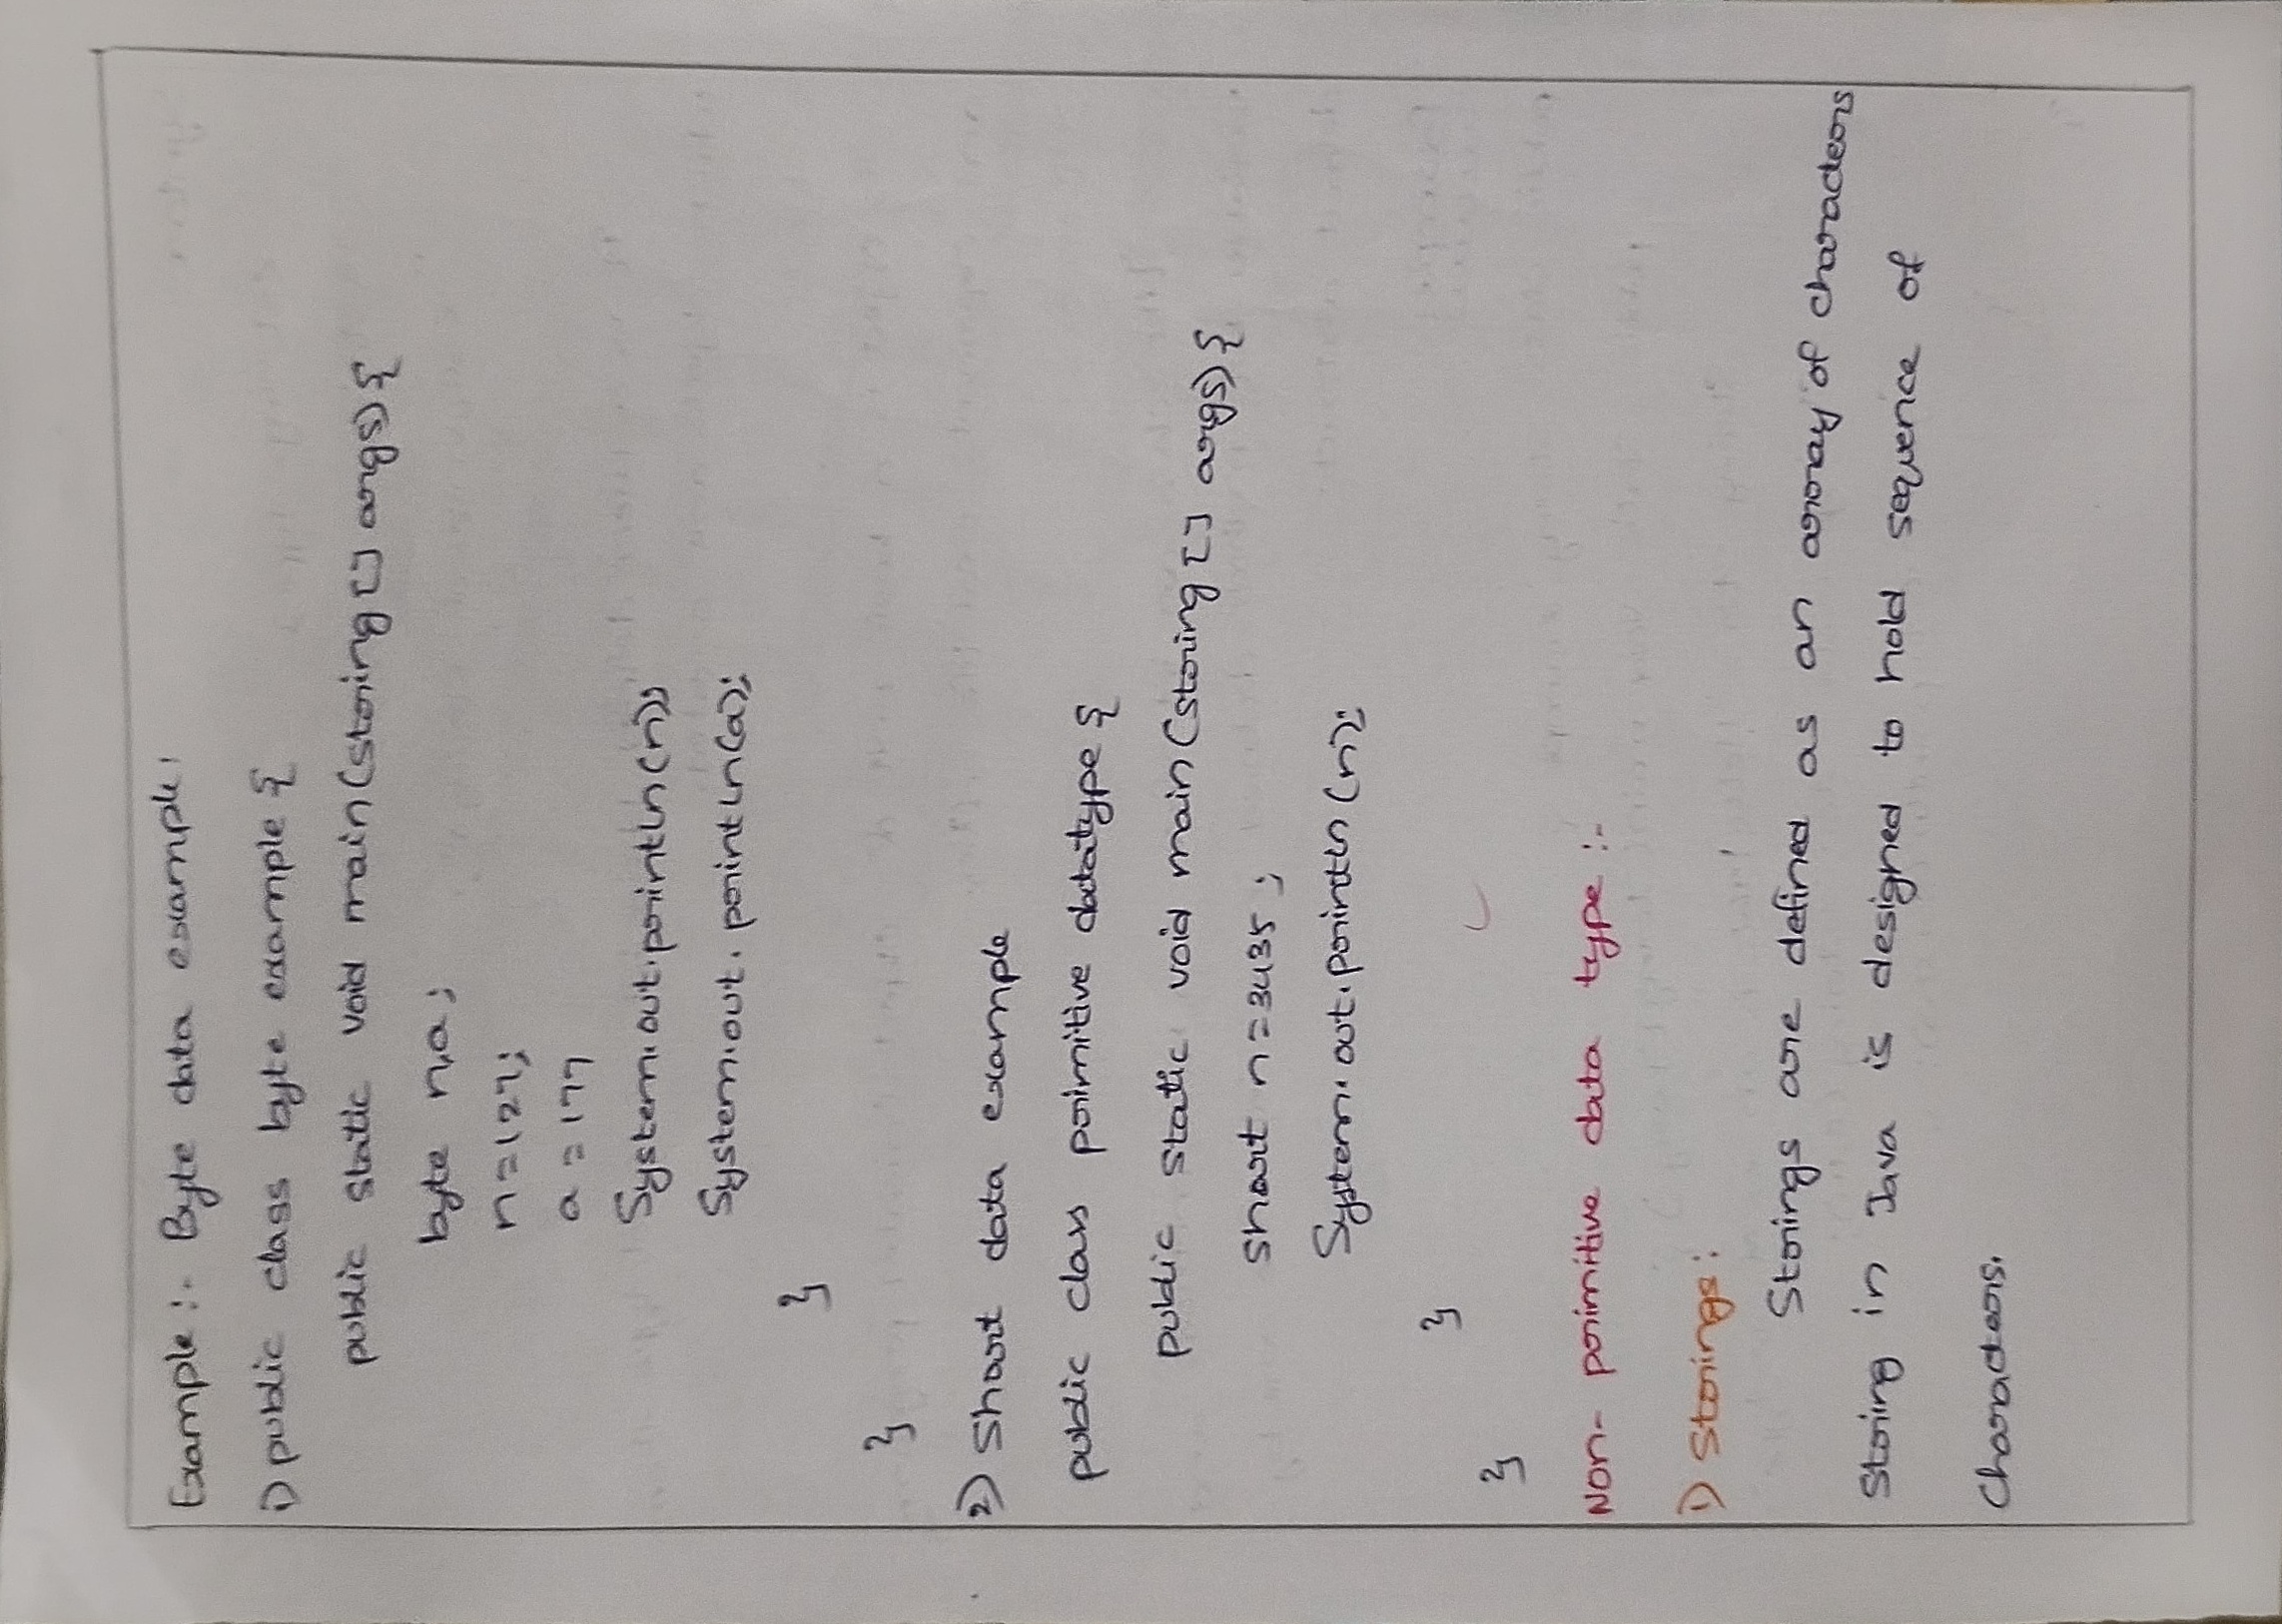 Example :- Byte data example:
1) public class byte example {
public static void main(string [] args) {
byte n,a ;
n = 127;
a = 177
System.out.println(n);
System.out.println(a);
}
}
2) Short data example
public class primitive datatype {
public static void main(string [] args) {
short n = 3435 ;
System.out.println(n);
}
}
Non- primitive data type :-
1) Strings :
Strings are defined as an array of characters
String in Java is designed to hold sequence of
characters.